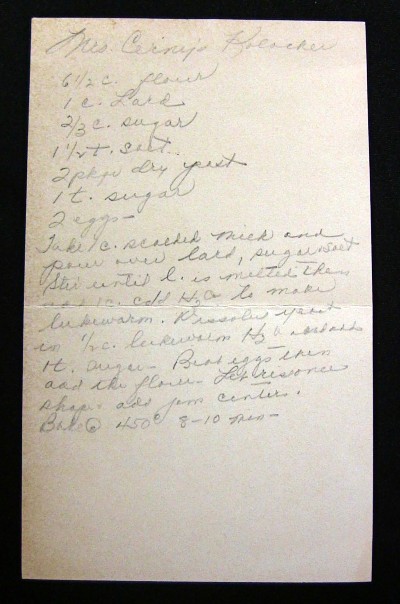 Mrs Cerny's Kolaches
6 1/2 c. flour
1 c. Lard
2/3 c. sugar
1 1/2 t. Salt
2 pkge dry yeast
1 t. sugar
2 eggs -
Take 1 c. scalded milk and
pour over lard, sugar, salt
Stir until l. is melted then
add 1 c. cold H2O to make
lukewarm. Dissolve yeast
in 1/2 c. lukewarm H2O and add
1 t. sugar. Beat eggs then
add the flour. Let rise once
shape - add jam centers.
Bake @ 450° 8-10 min -